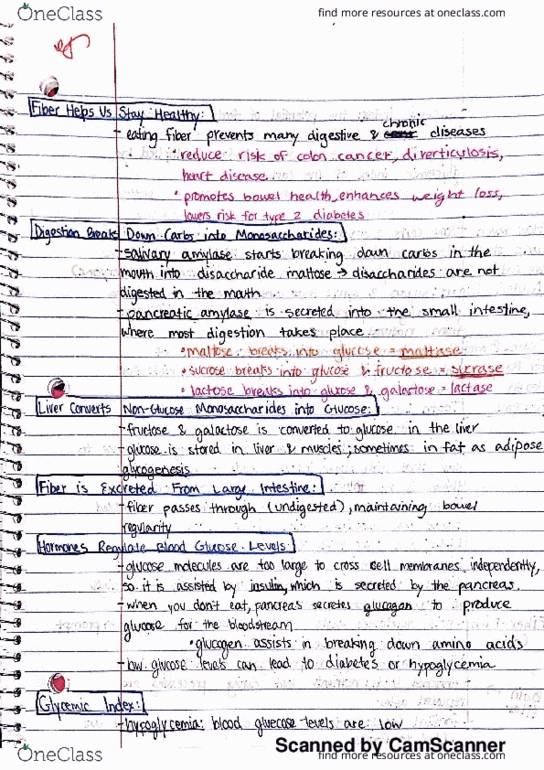 OneClass
find more resources at oneclass.com
Fiber Helps Us Stay Healthy:
- eating fiber prevents many digestive & chronic diseases
• reduce risk of colon cancer, diverticulosis,
heart disease
• promotes bowel health, enhances weight loss,
lowers risk for type 2 diabetes
Digestion Breaks Down Carbs into Monosaccharides:
- salivary amylase starts breaking down carbs in the
mouth into disaccharide maltose → disaccharides are not
digested in the mouth
- pancreatic amylase is secreted into the small intestine,
where most digestion takes place
• maltose breaks into glucose = maltase
• sucrose breaks into glucose & fructose = sucrase
• lactose breaks into glucose & galactose = lactase
Liver Converts Non-Glucose Monosaccharides into Glucose:
- fructose & galactose is converted to glucose in the liver
- glucose is stored in liver & muscles; sometimes in fat as adipose
glycogenesis
Fiber is Excreted From Large Intestine:
- fiber passes through (undigested), maintaining bowel
regularity
Hormones Regulate Blood Glucose Levels:
- glucose molecules are too large to cross cell membranes independently,
so it is assisted by insulin, which is secreted by the pancreas.
- when you don't eat, pancreas secretes glucagon to produce
glucose for the bloodstream
• glucagen assists in breaking down amino acids
- low glucose levels can lead to diabetes or hypoglycemia
Glycemic Index:
- hypoglycemia: blood glucose levels are low
Scanned by CamScanner
OneClass
find more resources at oneclass.com